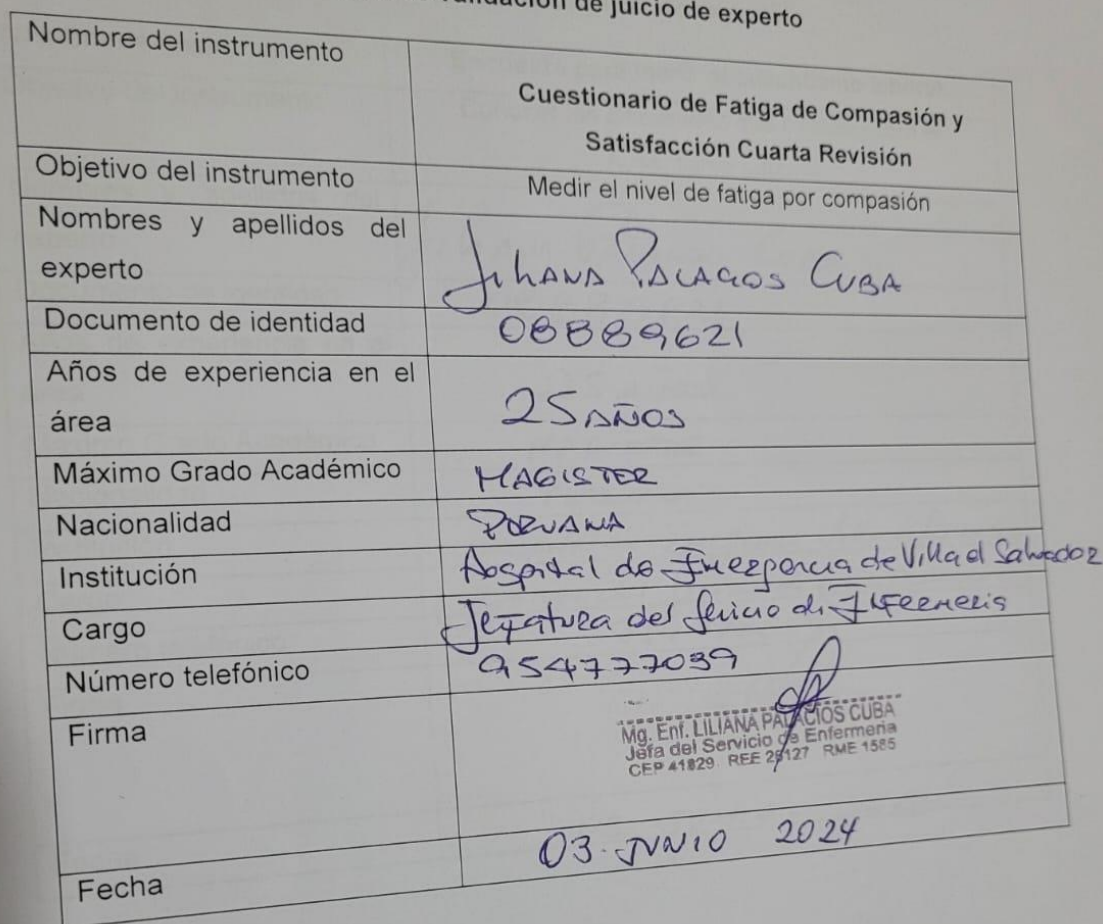 de juicio de experto
Nombre del instrumento
Cuestionario de Fatiga de Compasión y
Satisfacción Cuarta Revisión
Objetivo del instrumento
Medir el nivel de fatiga por compasión
Nombres y apellidos del
experto
Liliana Palacios Cuba
Documento de identidad
08889621
Años de experiencia en el
área
25 años
Máximo Grado Académico
MAGISTER
Nacionalidad
PERUANA
Institución
Hospital de Emergencia de Villa el Salvador
Cargo
Jefatura del Servicio de Enfermería
Número telefónico
954777039
Firma
Mg. Enf. LILIANA PALACIOS CUBA
Jefa del Servicio de Enfermería
CEP 41829 REE 28127 RME 1585
03 JUNIO 2024
Fecha